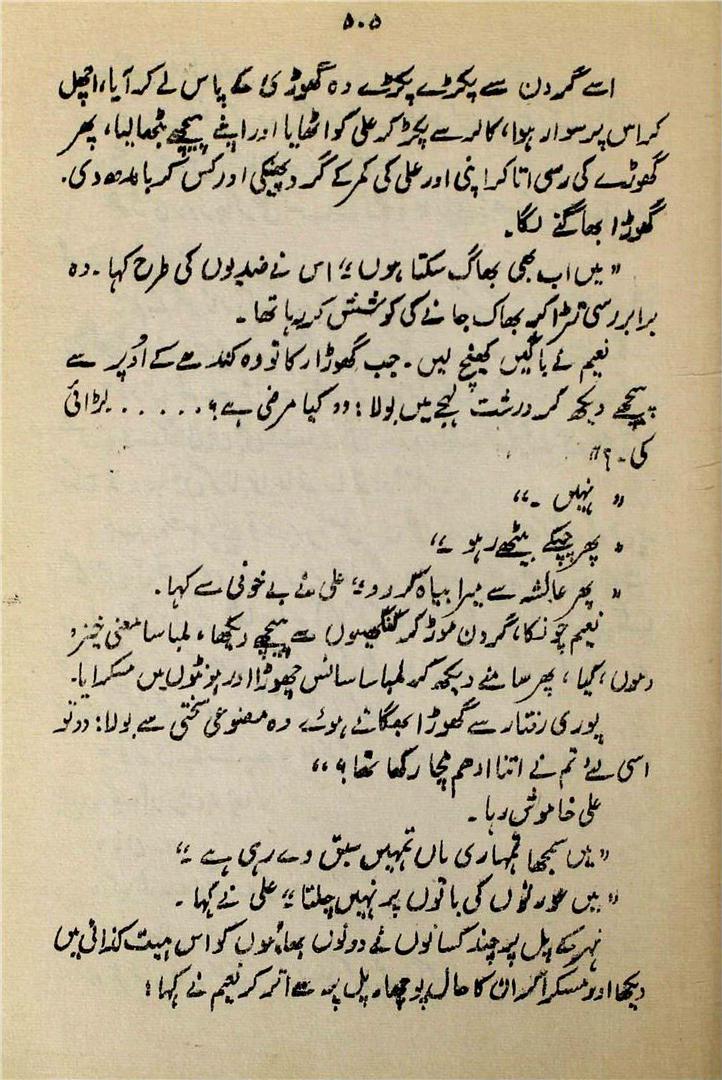 ۵۰۵
اسے گردن سے پکڑے پکڑے وہ گھوڑی کے پاس لے کر آیا، اچھل
کر اس پر سوار ہوا، کالر سے پکڑ کر علی کو اٹھایا اور اپنے پیچھے بٹھا لیا، پھر
گھوڑے کی رسی اتار کر اپنی اور علی کی کمر کے گرد پھینکی اور کس کر باندھ دی۔
گھوڑا بھاگنے لگا۔
"میں اب بھی بھاگ سکتا ہوں۔" اس نے ضدیوں کی طرح کہا۔ وہ
برابر رسی تڑا کر بھاگ جانے کی کوشش کر رہا تھا۔
نعیم نے باگیں کھینچ لیں۔ جب گھوڑا رکا تو وہ کندھے کے اُوپر سے
پیچھے دیکھ کر درشت لہجے میں بولا: "کیا مرضی ہے؟ ..... لڑائی
کی۔؟"
"نہیں۔"
"پھر چپکے بیٹھے رہو۔"
"پھر عائشہ سے میرا بیاہ کر دو۔" علی نے بے خوفی سے کہا۔
نعیم چونکا، گردن موڑ کر کنکھیوں سے پیچھے دیکھا، لمبا سا معنی خیز "
ہوں" کیا، پھر سامنے دیکھ کر لمبا سا سانس چھوڑا اور ہونٹوں میں مسکرایا۔
پوری رفتار سے گھوڑا بھگاتے ہوئے وہ مصنوعی سختی سے بولا: "تو
اسی لئے تم نے اتنا ادھم مچا رکھا تھا؟"
علی خاموش رہا۔
"میں سمجھا تمہاری ماں تمہیں سبق دے رہی ہے۔"
"میں عورتوں کی باتوں پر نہیں چلتا۔" علی نے کہا۔
نہر کے پل پر چند کسانوں نے دونوں بھائیوں کو اس ہیت کذائی میں
دیکھا اور مسکرا کر ان کا حال پوچھا۔ پل پر سے اتر کر نعیم نے کہا: